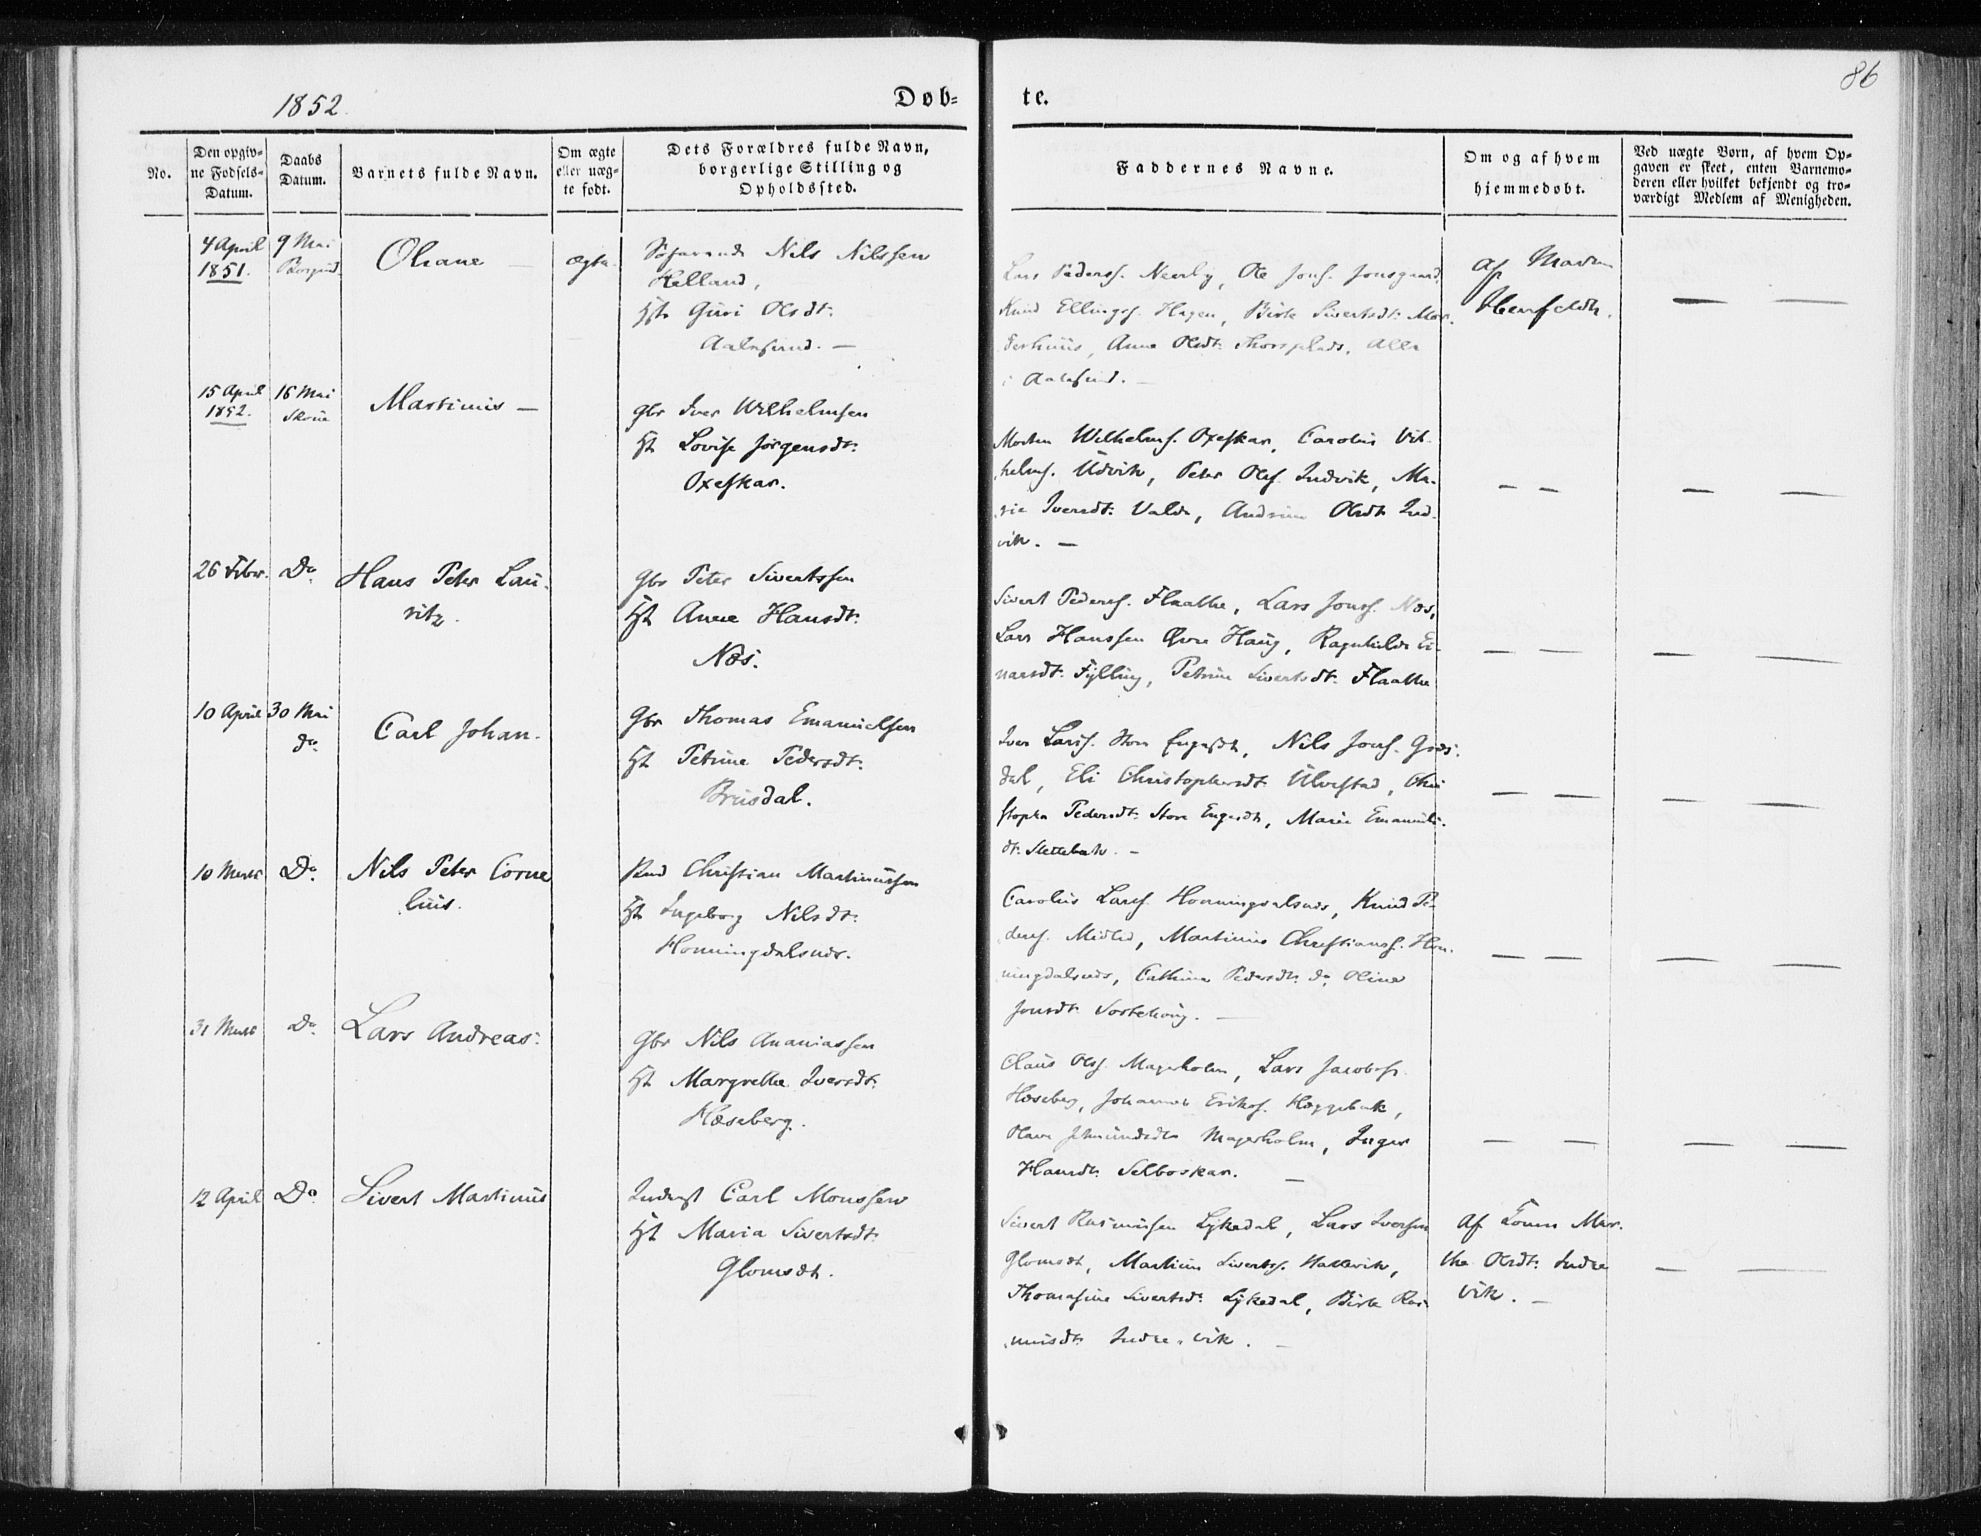 1852.
Døb-
te.
86
No.
Den opgiv-
ne Fødsels-
Datum.
Daabs
Datum.
Barnets fulde Navn.
Om ægte
eller uæg-
te født.
Dets Forældres fulde Navn,
borgerlige Stilling og
Opholdssted.
Faddernes Navne.
Om og af hvem
hjemmedøbt.
Ved uægte Børn, af hvem Op-
gaven er skeet, enten Barnemo-
deren eller hvilket bekjendt og tro-
værdigt Medlem af Menigheden.
4 April
1851.
9 Mai
Borgund
Oliane
ægte.
Søfarende Nils Nilssen
Helland,
Hst Guri Olsdt:
Aalesund. —
Lars Peders. Nerby, Ole Jons. Jonsgaard,
Knud Ellings. Hagen, Birte Sivertsdt: Mo-
derhuus, Anne Olsdt: Thorsplads, Alle
i Aalesund. —
Af Madm
15 April
1852.
16 Mai
Skoue
Martinus —
gbr Iver Wilhelmsen
Hst Lovise Jørgensdt:
Oxeskar.
Morten Wilhelms. Oxeskar, Carolus Vil-
helms. Udvik, Peter Ols. Indvik, Ma-
rie Iversdt: Valde, Olsdt Ind-
vik. —
26 Febr.
Do
Hans Peter Lau-
ritz.
gbr Peter Sivertssen
Hst Anne Hansdt:
Næs.
Sivert Peders. Flaathe, Lars Jons. Næs,
Lars Hanssen Øvre Haug, Ragnhilde Ei-
narsdt: Fylling, Petrine Sivertsdt: Flaathe
10 April
30 Mai
do.
Carl Johan.
Gbr Thomas Emanuelsen
Hst Petrine Pedersdt:
Brusdal.
Iver Larss. Store Nils Jons. Grøs-
dal, Eli Christophersdt Ulvestad, Chri-
stopha Pedersdt: Store Marie Emanuels-
dt: Slettebak. —
10 Marts
Do.
Nils Peter Corne
lius.
Christian Martinussen
Hst Ingeborg Nilsdt:
Honningdalsnæs.
Carolus Larss. Honningdalsnæs, Knud Pe-
ders. Midlid, Martinus Christianss. Hon-
ningdalsnæs, Cathrine Pedersdt: do. Oline
Jonsdt:
31 Marts
Do.
Lars Andreas.
Gbr Nils Ananiassen
Hst Margrethe Iversdt:
Hæseberg.
Claus Ols. Magerholm, Lars Jacobss.
Hæseberg, Johannes Eriks. Hæggebak,
Magerholm, Inger
Hansdt: Selboskar. —
12 April
Do.
Sivert Martinus
Inderst Carl Monssen
Hst Maria Sivertsdt:
Glomsdt.
Sivert Rasmussen Lykedal, Lars Iversen
Glomsdt, Martinus Sivertss.
Thomasine Sivertsd: Lykedal, Birte Ras-
musdt: Indre-vik. —
Af Mar-
the Olsdt: Indre
vik. —